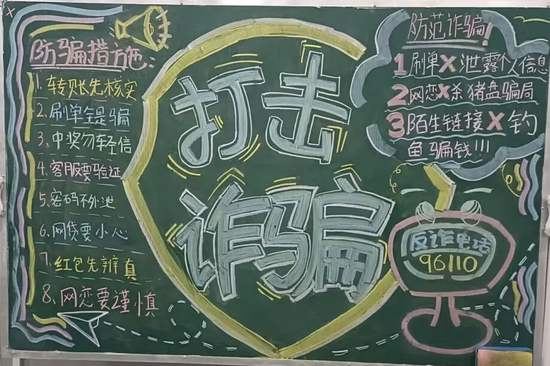 防骗措施:
1.转账先核实
2.刷单全是骗
3.中奖勿轻信
4.客服要验证
5.密码不外泄
6.网贷要小心
7.红包先辨真
8.网恋要谨慎
打击
诈骗
防范诈骗!
1刷单X泄露个人信息
2网恋X杀猪盘骗局
3陌生链接X钓
鱼骗钱!!!
反诈电话
96110